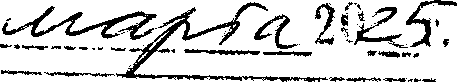 марта 2025.